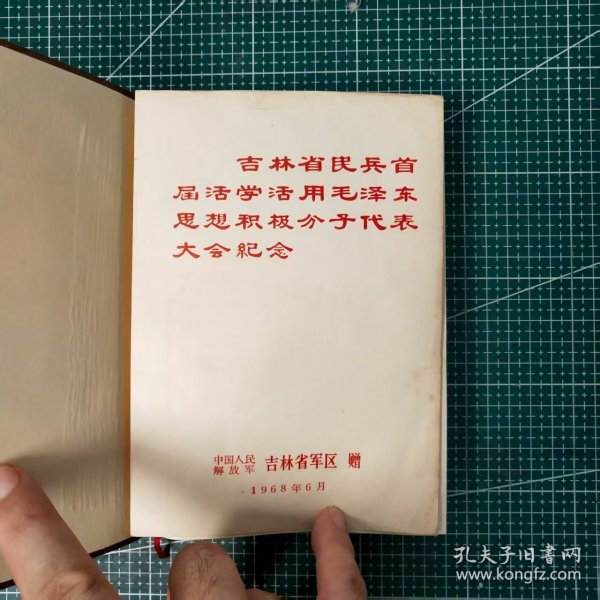 吉林省民兵首
届活学活用毛泽东
思想积极分子代表
大会紀念
中国人民
解放军 吉林省军区 赠
1968年6月
孔夫子旧书网
www.kongfz.com